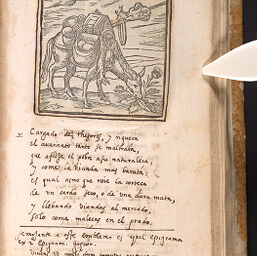 Cargado de thesoros, y riqueza
el avariento tanto se maltrata,
que aflige el pobre a su naturaleza,
y come la vianda mas barata:
es qual asno que roie la corteza
de un cardo seco, o de una dura mata,
y llebando viandas al mercado,
solo come malezas en el prado.
semejante a este emblema es aquel epigrama